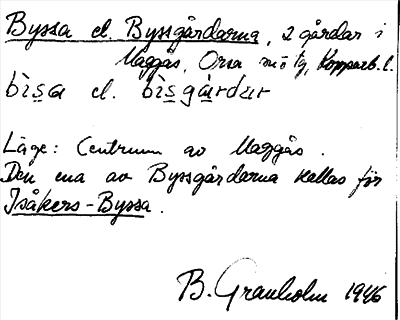 Byssa el. Byssgårdarna, 2 gårdar i
Maggås, Orsa sn o tg, Kopparb. l.
bìsa el. bìsgàrdar
Läge: Centrum av Maggås.
Den ena av Byssgårdarna kallas för
Isåkers-Byssa.
B. Granholm 1946